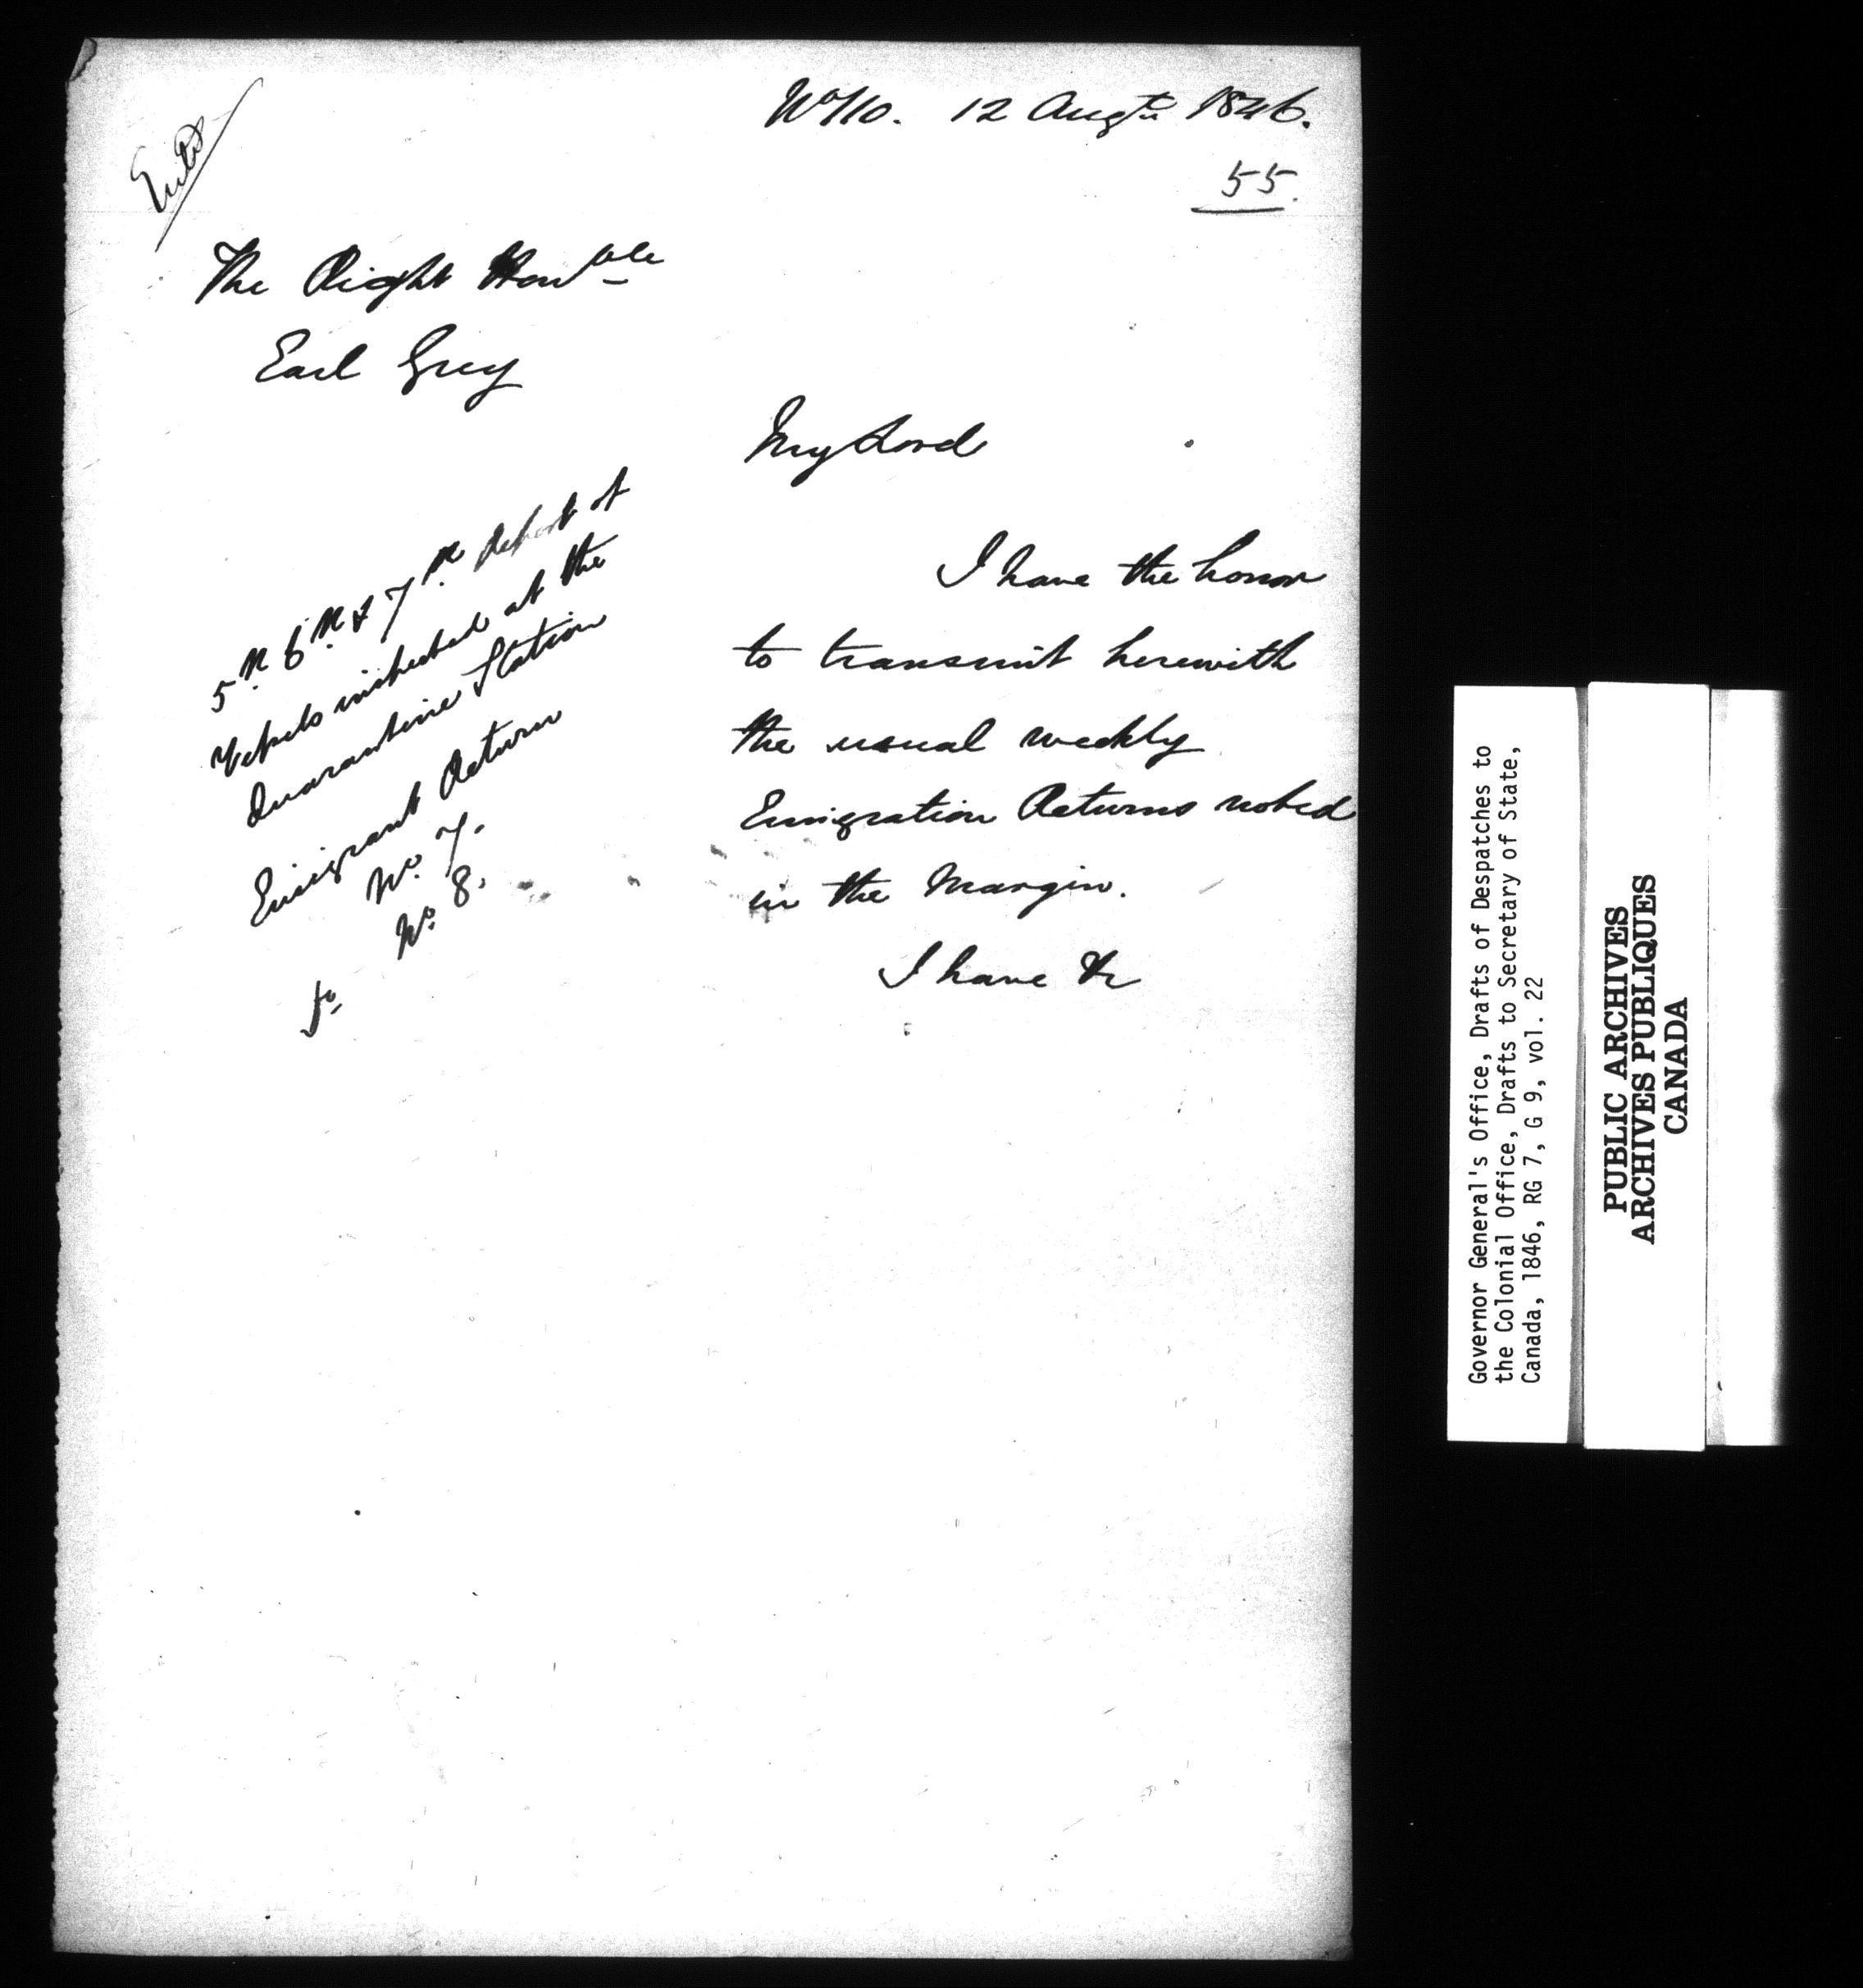 Entd
No 110. 12 Augt 1846.
55.
The Right Honble
Earl Grey
My Lord
I have the honor
to transmit herewith
the usual weekly
Emigration Returns noted
in the Margin.
I have &c
5th 6th & 7th Report of
Vessels inspected at the
Quarantine Station
Emigrant Return
No. 7.
No. 8.
Governor General's Office, Drafts of Despatches to
the Colonial Office, Drafts to Secretary of State,
Canada, 1846, RG 7, G 9, vol. 22
PUBLIC ARCHIVES
ARCHIVES PUBLIQUES
CANADA